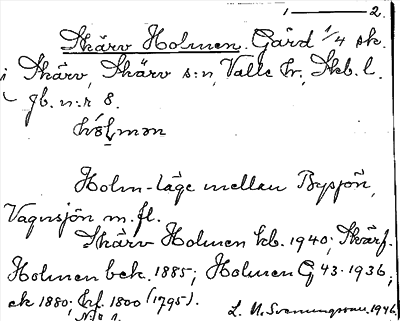 1 — 2.
Skärv Holmen. Gård 1/4 sk.
i Skärv, Skärv s:n, Valle hr, Skb. l.
jb. n:r 8.
hólmən
Holm-läge mellan Bysjön,
Vagnsjön m. fl.
Skärv Holmen kb. 1940; Skärf-
Holmen bek. 1885; Holmen G 43. 1936;
ek 1880; hf. 1800 (1795).
L. N. Svenungsson. 1946.